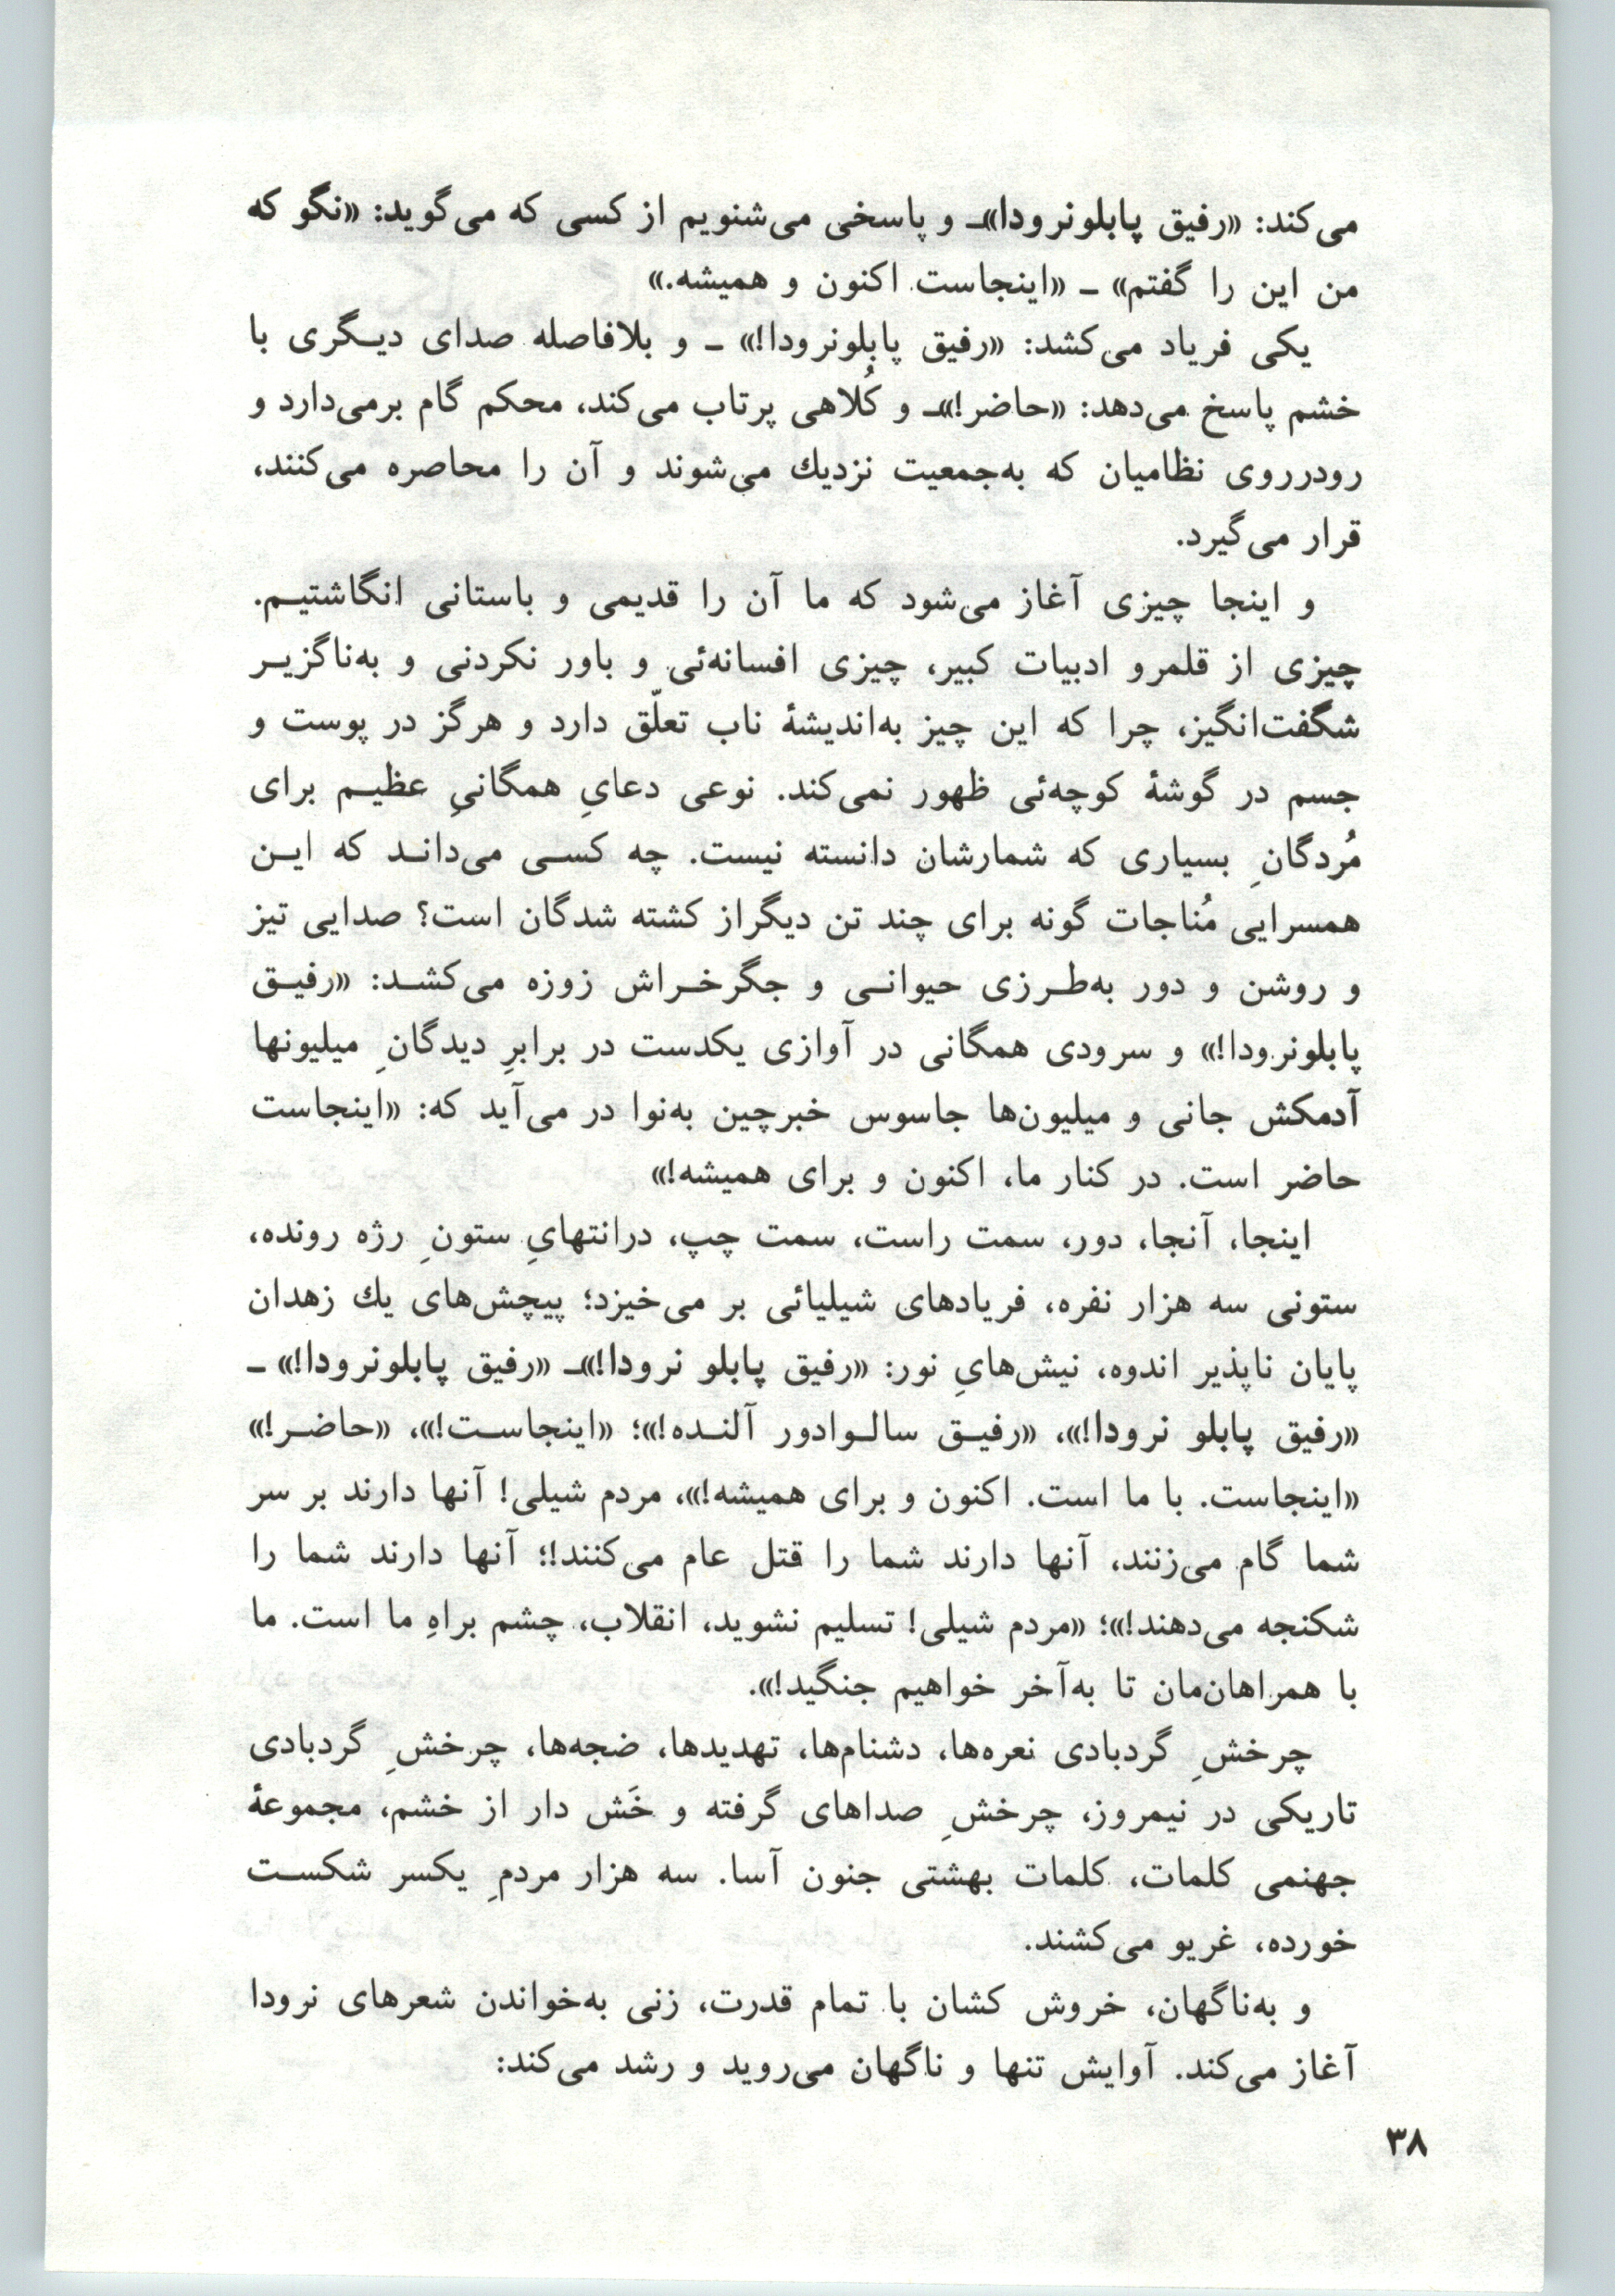 می‌کند: «رفیق پابلونرودا»ـ و پاسخی می‌شنویم از کسی که می‌گوید: «نگو که
من این را گفتم» ـ «اینجاست اکنون و همیشه.»
یکی فریاد می‌کشد: «رفیق پابلونرودا!» ـ و بلافاصله صدای دیـگری با
خشم پاسخ می‌دهد: «حاضر!»ـ و کُلاهی پرتاب می‌کند، محکم گام برمی‌دارد و
رودرروی نظامیان که به‌جمعیت نزدیك می‌شوند و آن را محاصره می‌کنند،
قرار می‌گیرد.
و اینجا چیزی آغاز می‌شود که ما آن را قدیمی و باستانی انگاشتیـم.
چیزی از قلمرو ادبیات کبیر، چیزی افسانه‌ئی و باور نکردنی و به‌ناگزیـر
شگفت‌انگیز، چرا که این چیز به‌اندیشهٔ ناب تعلّق دارد و هرگز در پوست و
جسم در گوشهٔ کوچه‌ئی ظهور نمی‌کند. نوعی دعایِ همگانیِ عظیـم برای
مُردگانِ بسیاری که شمارشان دانسته نیست. چه کسـی می‌دانـد که ایـن
همسرایی مُناجات گونه برای چند تن دیگراز کشته شدگان است؟ صدایی تیز
و روشن و دور به‌طـرزی حیوانـی و جگرخـراش زوزه می‌کشـد: «رفیـق
پابلونرودا!» و سرودی همگانی در آوازی یکدست در برابرِ دیدگانِ میلیونها
آدمکش جانی و میلیون‌ها جاسوس خبرچین به‌نوا در می‌آید که: «اینجاست
حاضر است. در کنار ما، اکنون و برای همیشه!»
اینجا، آنجا، دور، سمت راست، سمت چپ، درانتهایِ ستونِ رژه رونده،
ستونی سه هزار نفره، فریادهای شیلیائی بر می‌خیزد؛ پیچش‌های یك زهدان
پایان ناپذیر اندوه، نیش‌هایِ نور: «رفیق پابلو نرودا!»ـ «رفیق پابلونرودا!» ـ
«رفیق پابلو نرودا!»، «رفیـق سالـوادور آلنـده!»؛ «اینجاسـت!»، «حاضـر!»
«اینجاست. با ما است. اکنون و برای همیشه!»، مردم شیلی! آنها دارند بر سر
شما گام می‌زنند، آنها دارند شما را قتل عام می‌کنند!؛ آنها دارند شما را
شکنجه می‌دهند!»؛ «مردم شیلی! تسلیم نشوید، انقلاب، چشم براهِ ما است. ما
با همراهان‌مان تا به‌آخر خواهیم جنگید!».
چرخشِ گردبادی نعره‌ها، دشنام‌ها، تهدیدها، ضجه‌ها، چرخشِ گردبادی
تاریکی در نیمروز، چرخشِ صداهای گرفته و خَش دار از خشم، مجموعهٔ
جهنمی کلمات، کلمات بهشتی جنون آسا. سه هزار مردمِ یکسر شکسـت
خورده، غریو می‌کشند.
و به‌ناگهان، خروش کشان با تمام قدرت، زنی به‌خواندن شعرهای نرودا
آغاز می‌کند. آوایش تنها و ناگهان می‌روید و رشد می‌کند:
۳۸